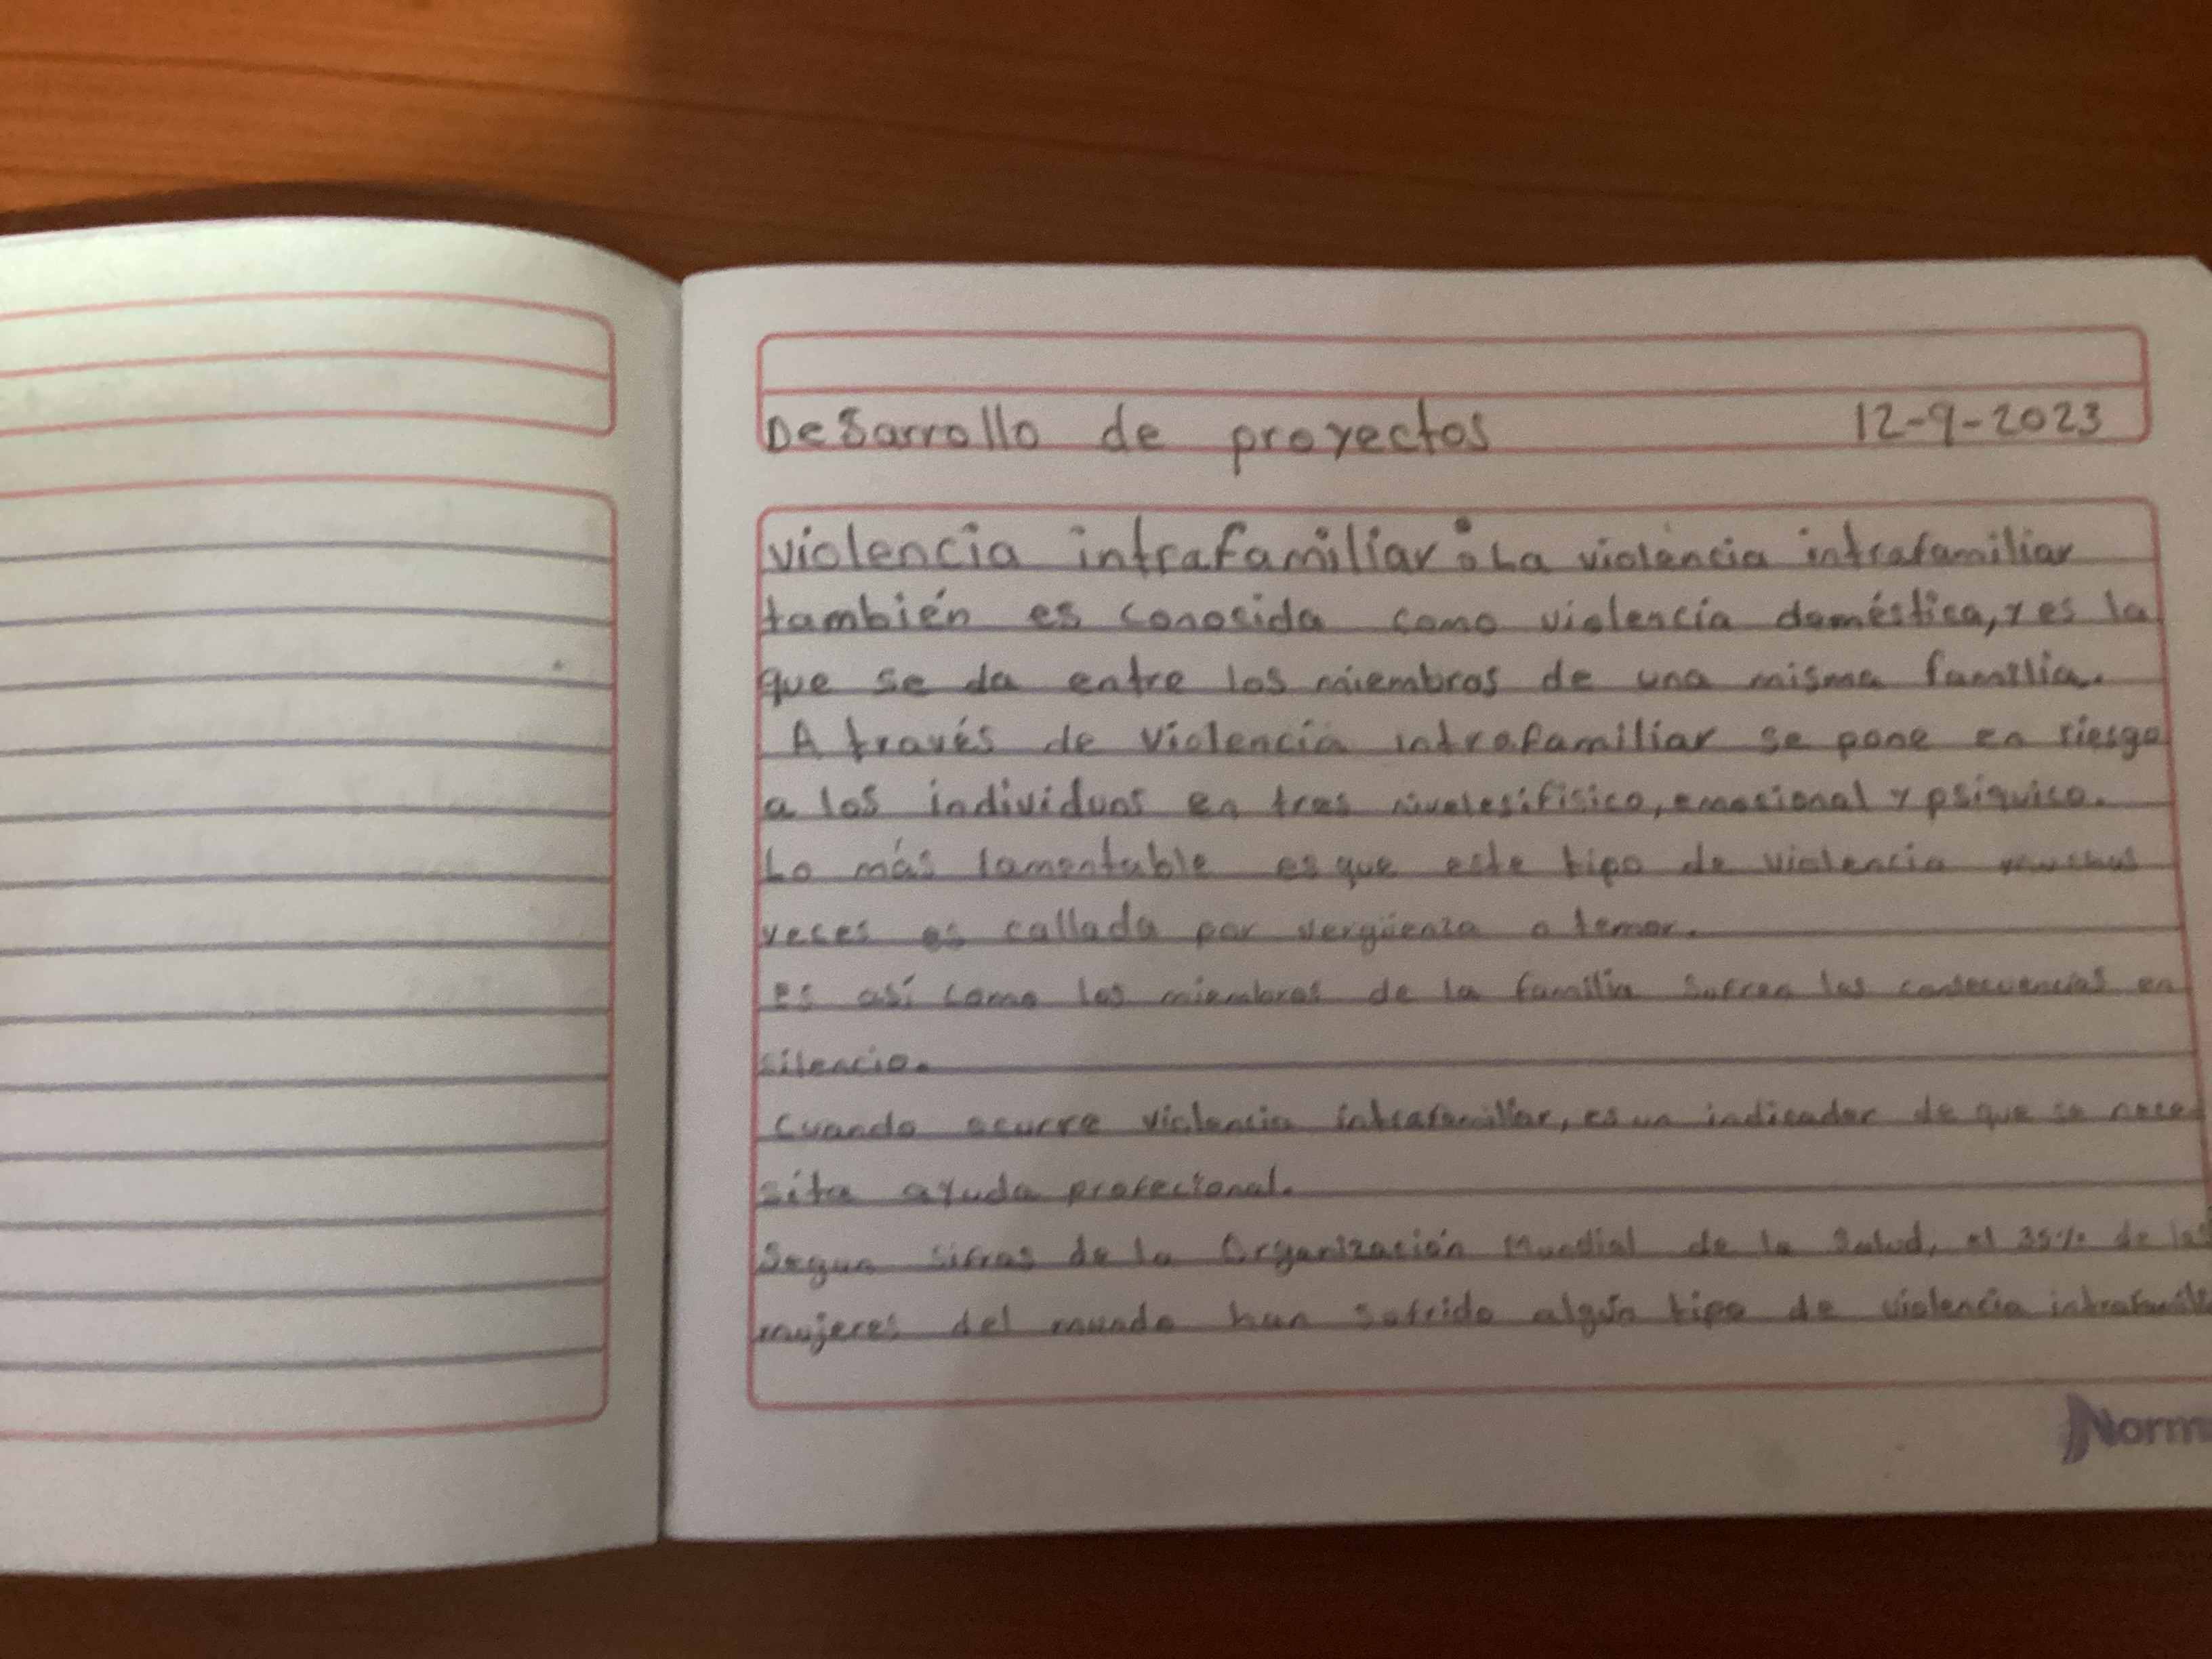 Desarrollo de proyectos 12-9-2023
violencia intrafamiliar: La violencia intrafamiliar
también es conosida como violencia doméstica, y es la
que se da entre los miembros de una misma familia.
A través de violencia intrafamiliar se pone en riesgo
a los individuos en tres niveles: fisico, emosional y psiquico.
Lo más lamentable es que este tipo de violencia muchas
veces es callada por vergüenza o temor.
es así como los miembros de la familia sufren las consecuencias en
silencio.
Cuando ocurre violencia intrafamiliar, es un indicador de que se nece
sita ayuda profecional.
Segun sifras de la Organización Mundial de la Salud, el 35% de las
mujeres del mundo han sofrido algún tipo de violencia
Norm